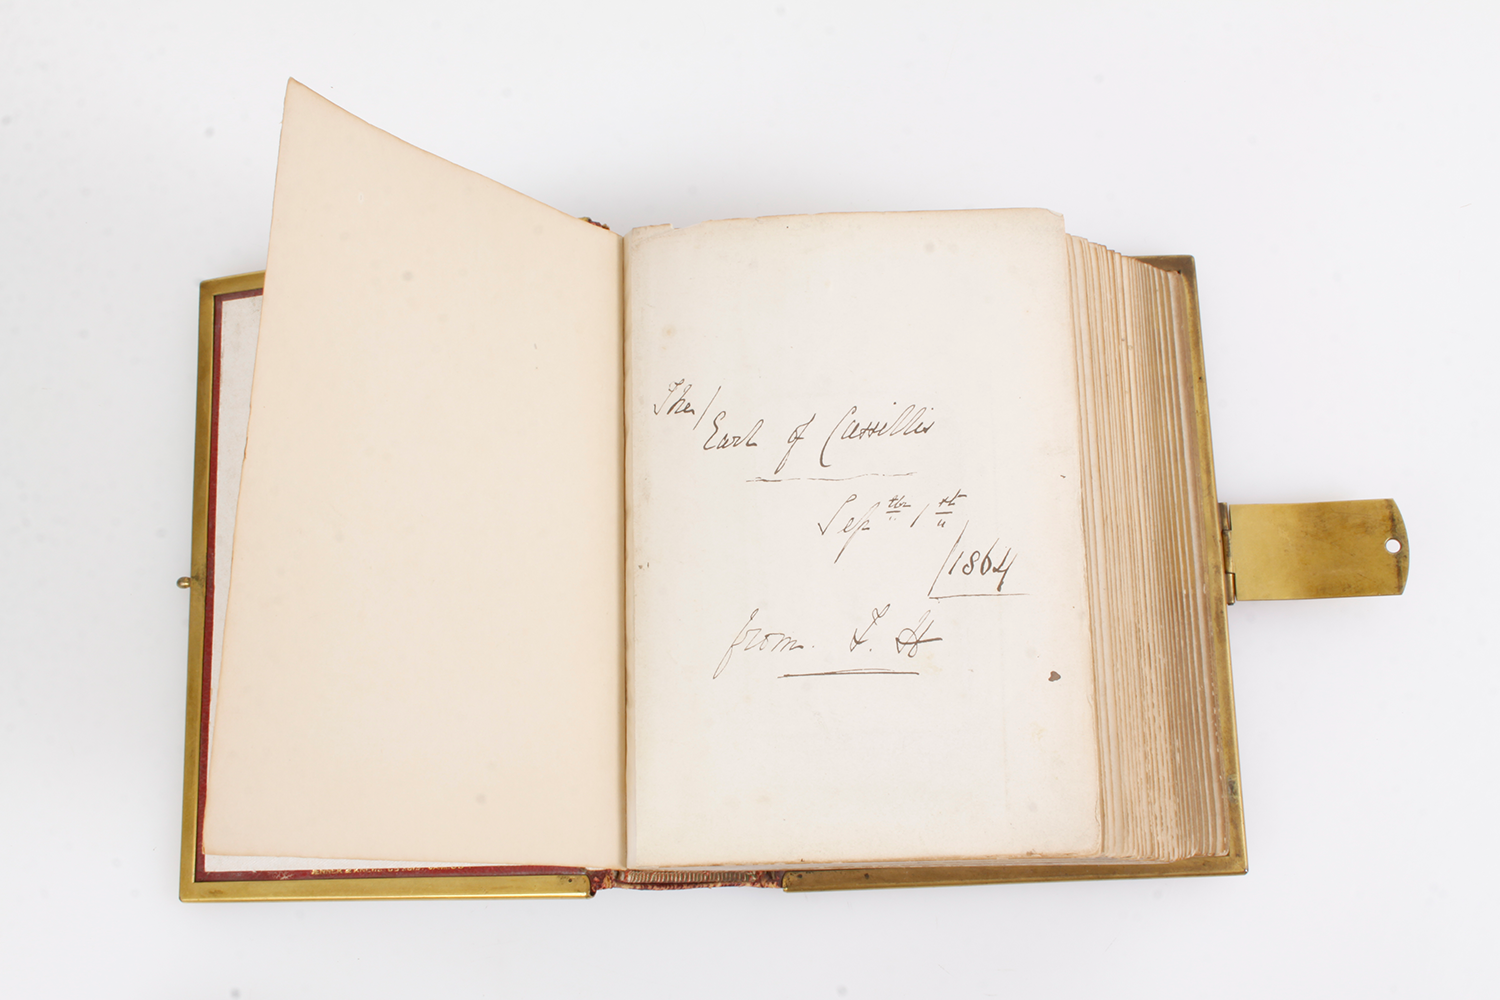 The/
Earl of Cassillis
Septbr 1st
/1864
from. F. H